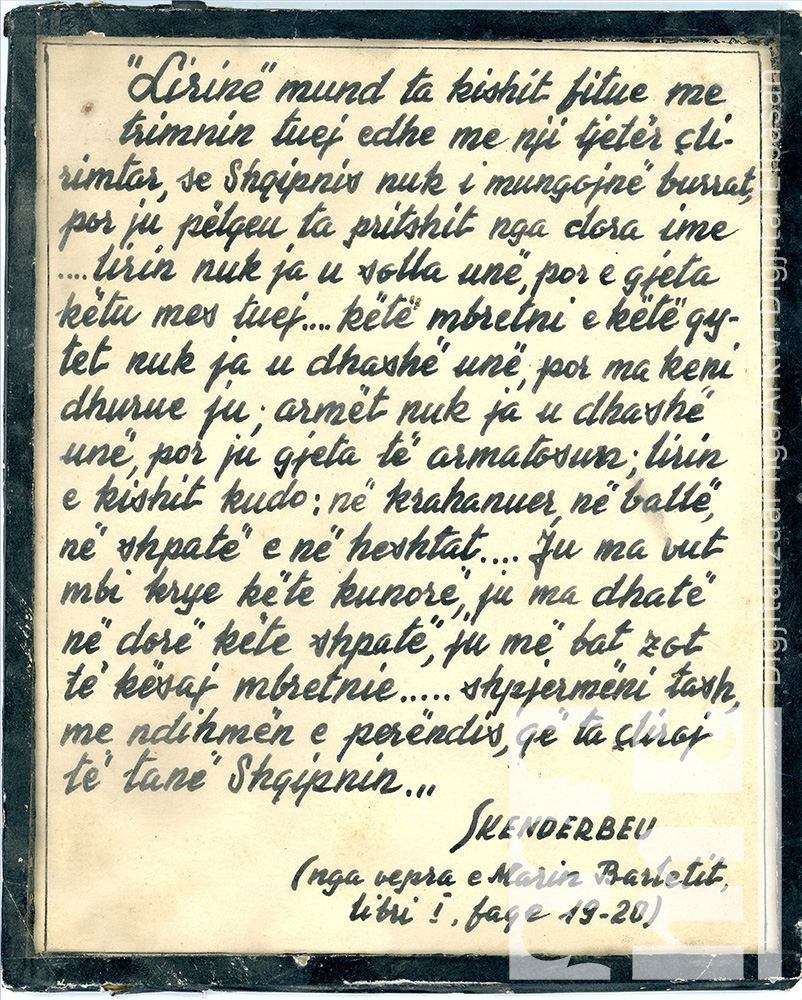 "Lirinë" mund ta kishit fitue me
trimnin tuej edhe me nji tjetër çli-
rimtar, se Shqipnis nuk i mungojnë burrat,
por ju pëlqeu ta pritshit nga dora ime
....lirin nuk ja u solla unë, por e gjeta
këtu mes tuej.... këtë mbretni e këtë qy-
tet nuk ja u dhashë unë, por ma keni
dhurue ju; armët nuk ja u dhashë
unë, por ju gjeta të armatosun; lirin
e kishit kudo: në krahanuer, në ballë,
në shpatë e në heshtat.... Ju ma vut
mbi krye këte kunorë, ju ma dhatë
në dorë këte shpatë, ju më bat zot
të kësaj mbretnie..... shpjermëni tash,
me ndihmën e perëndis, që ta çliroj
të tanë Shqipnin...
SKENDERBEU
(nga vepra e Marin Barletit,
libri I, faqe 19-20)
Digjitalizuar nga Arkivi Digjital Elbasan